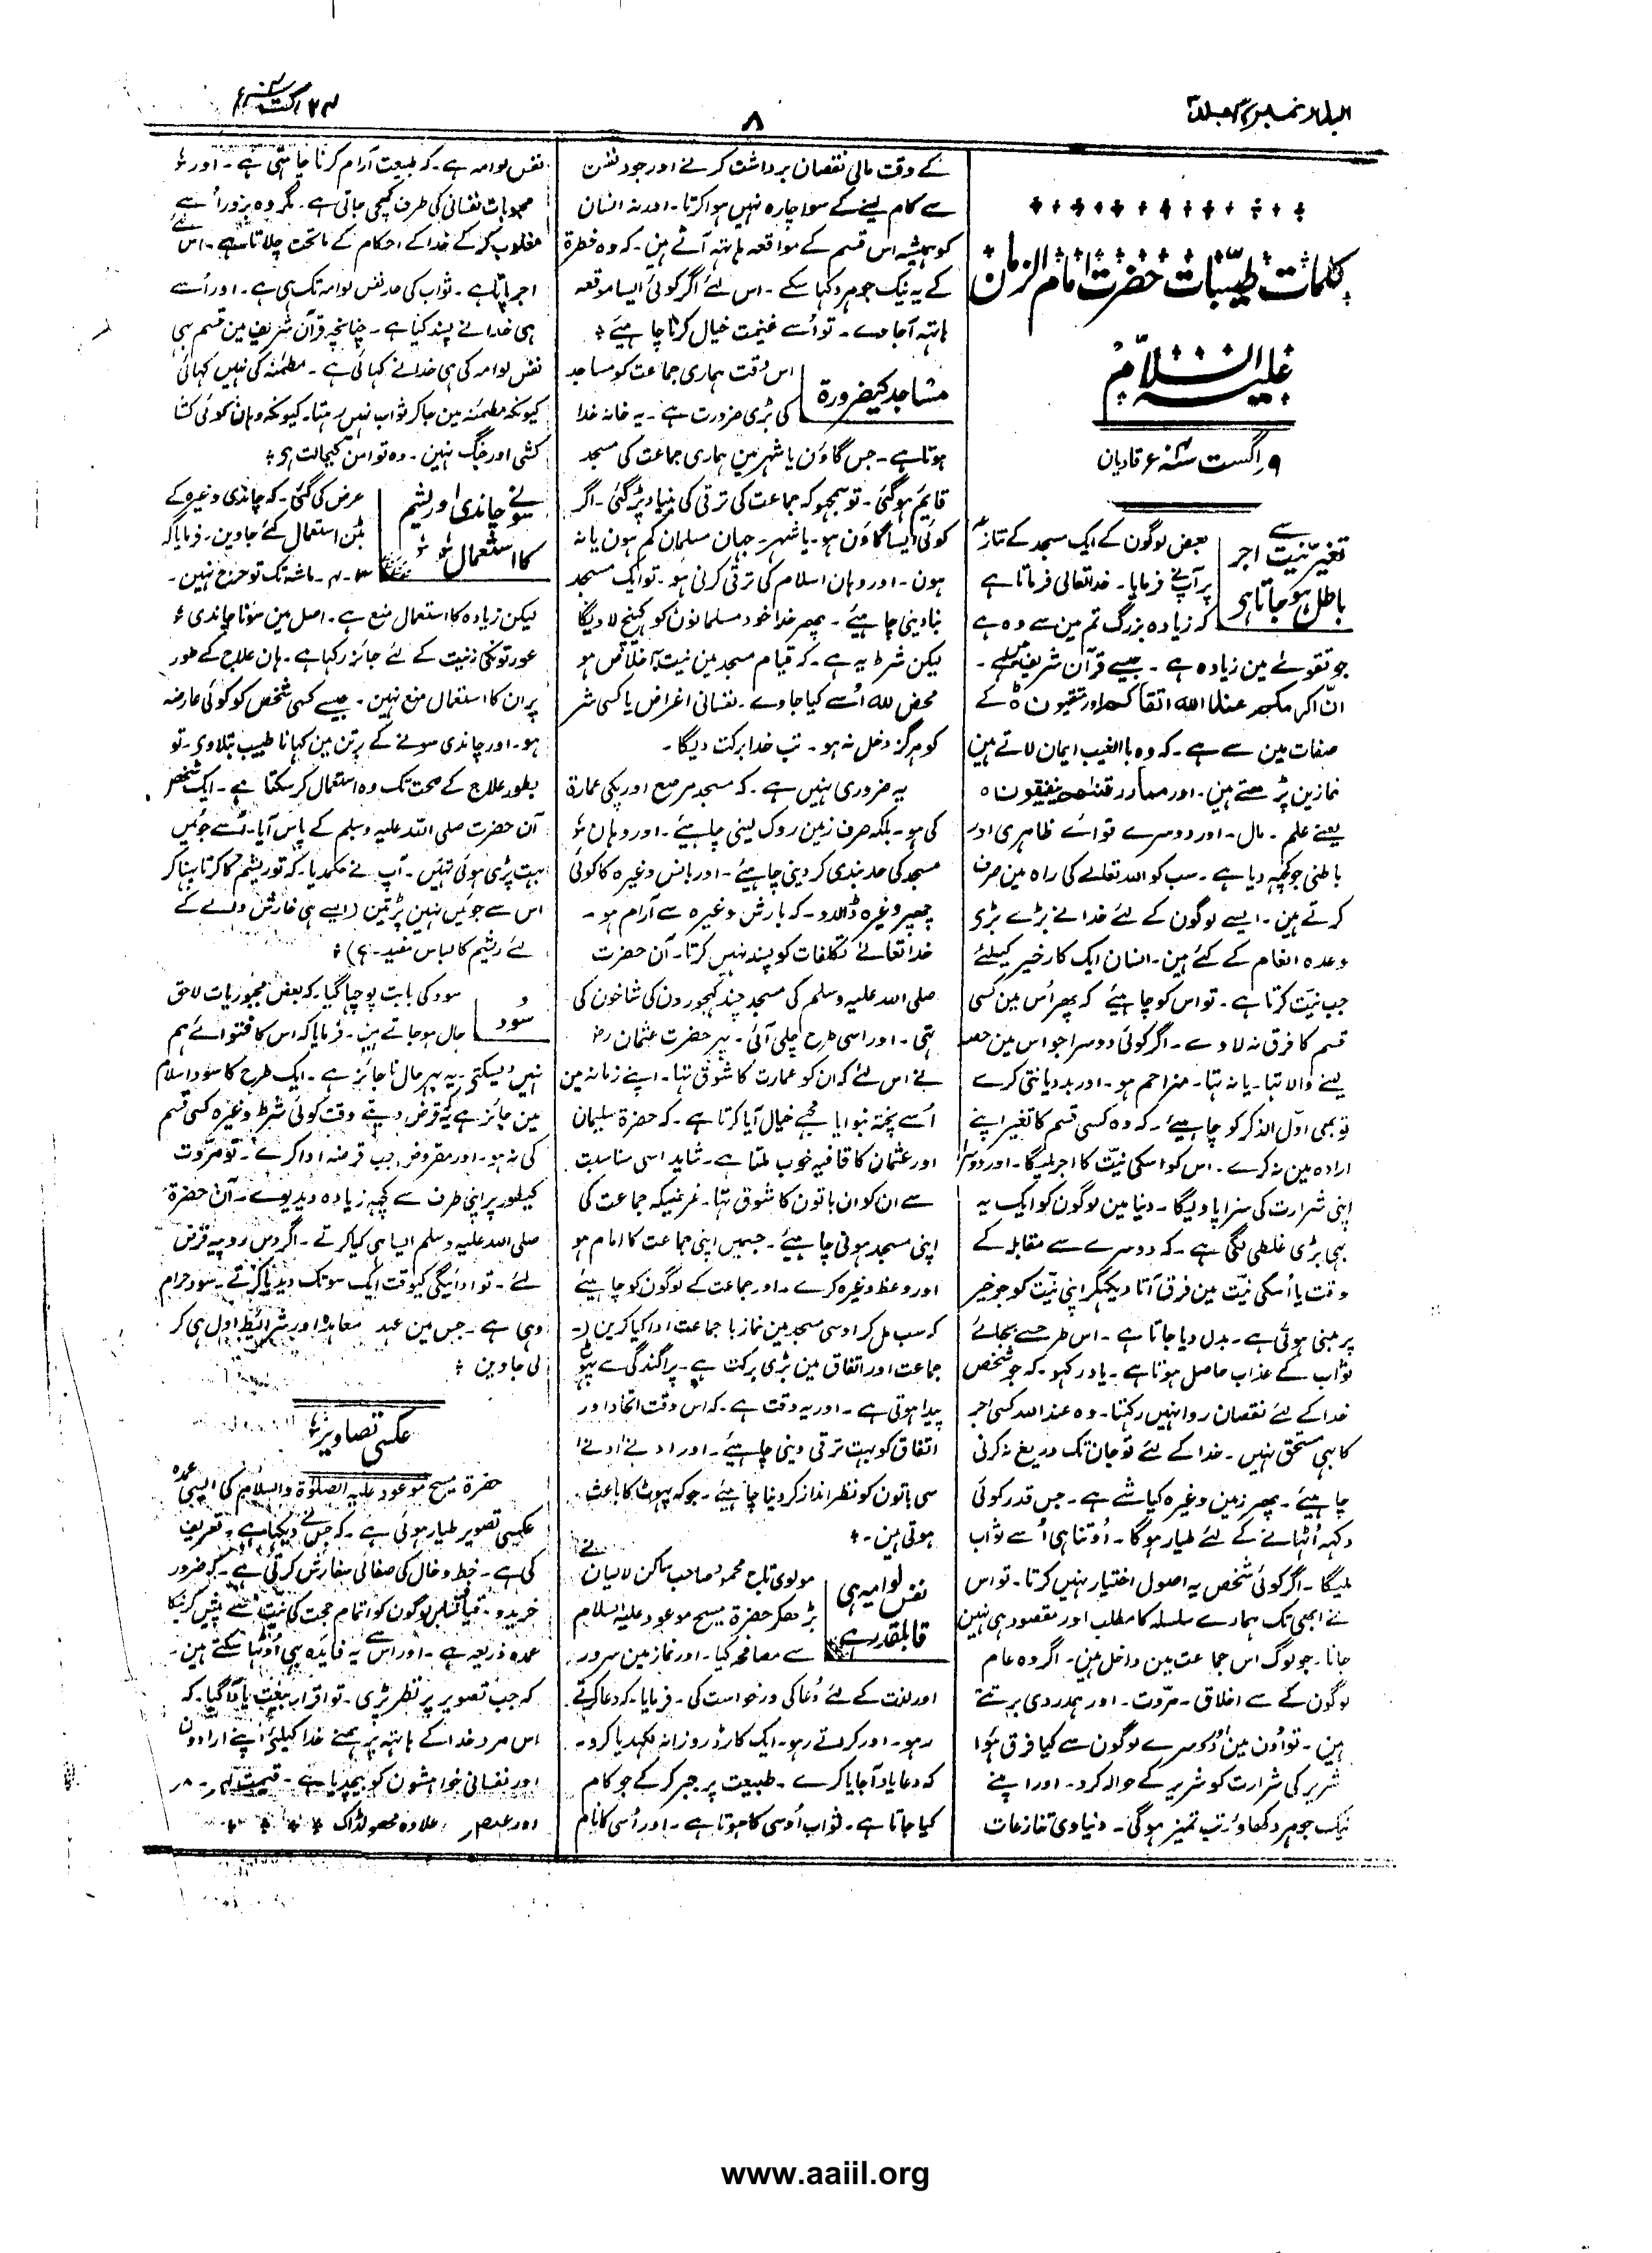 البدر نمبر ۳۲ جلد ۳
۸
۲۴ اگست سنہ ۱۹۰۴ء
کلمات طیّبات حضرت امام الزمان
علیہ السّلام
۹ اگست سنہ ۱۹۰۴ء قادیان
تغیر نیّت سے اجر
باطل ہو جاتا ہی
بعض لوگون کے ایک مسجد کے تنازعہ
پر آپنے فرمایا۔ خدا تعالی فرماتا ہے
کہ زیادہ بزرگ تم مین سے وہ ہے
جو تقوے مین زیادہ ہے۔ جیسے قرآن شریف مین ہے۔
انّ اکرمکم عند اللہ اتقاکم اور متقیون کے
صفات مین سے ہے۔ کہ وہ باالغیب ایمان لاتے ہین
نمازین پڑھتے ہین۔ اور مما رزقنٰھم ینفقون ہ
یعنے علم۔ مال۔ اور دوسرے قواے ظاہری اور
باطنی جو کچہہ دیا ہے۔ سب کو اللہ تعالے کی راہ مین صرف
کرتے ہین۔ ایسے لوگون کے لئے خدا نے بڑے بڑی
وعدہ انعام کے کئے ہین۔ انسان ایک کار خیر کیلئے
جب نیّت کرتا ہے۔ تو اس کو چاہیئے کہ پھر اُس مین کسی
قسم کا فرق نہ لاوے۔ اگر کوئی دوسرا جو اس مین حصہ
لینے والا تہا۔ یا نہ تہا۔ مزاحم ہو۔ اور بددیانتی کرے
تو بھی اوّل الذکر کو چاہیئے۔ کہ وہ کسی قسم کا تغیر اپنے
ارادہ مین نہ کرے۔ اس کو اسکی نیّت کا اجر ملیگا۔ اور دوسرا
اپنی شرارت کی سزا پاویگا۔ دنیا مین لوگون کو ایک یہ
بہی بڑی غلطی لگی ہے۔ کہ دوسرے سے مقابلہ کے
وقت یا اُسکی نیّت مین فرق آتا دیکہکر اپنی نیّت کو جو خیر
پر مبنی ہوتی ہے۔ بدل دیا جاتا ہے۔ اس طرح سے بجائے
ثواب کے عذاب حاصل ہوتا ہے۔ یاد رکہو۔ کہ جو شخص
خدا کے لئے نقصان روا نہیں رکہتا۔ وہ عند اللہ کسی اجر
کا بہی مستحق نہیں۔ خدا کے لئے تو جان تک دریغ نہ کرنی
چاہیئے۔ پھر زمین وغیرہ کیا شے ہے۔ جس قدر کوئی
دکہہ اُٹہانے کے لئے طیار ہوگا۔ اُوتنا ہی اُسے ثواب
ملیگا۔ اگر کوئی شخص یہ اصول اختیار نہیں کرتا۔ تو اس
نے ابھی تک ہمارے سلسلہ کا مطلب اور مقصود ہی نہین
جانا۔ جو لوگ اس جماعت مین داخل ہین۔ اگر وہ عام
لوگون کے سے اخلاق۔ مروّت۔ اور ہمدردی برتتے
ہین۔ تو اُون مین اور دوسرے لوگون سے کیا فرق ہُوا
شریر کی شرارت کو شریر کے حوالہ کرو۔ اور اپنے
نیک جوہر دکھاؤ۔ تب تمیز ہوگی۔ دنیاوی تنازعات
کے وقت مالی نقصان برداشت کرنے اور جود نفس
سے کام لینے کے سوا چارہ نہیں ہوا کرتا۔ اور نہ انسان
کو ہمیشہ اس قسم کے مواقعہ ہاتہہ آتے ہین۔ کہ وہ فطرة
کے یہ نیک جوہر دکہا سکے۔ اس لئے اگر کوئی ایسا موقعہ
ہاتہہ آجاوے۔ تو اُسے غنیمت خیال کرنا چاہیئے
مساجد کیضرورة
اس وقت ہماری جماعت کو مساجد
کی بڑی ضرورت ہے۔ یہ خانہ خدا
ہوتا ہے۔ جس گاؤن یا شہر مین ہماری جماعت کی مسجد
قایم ہوگئی۔ تو سمجہو کہ جماعت کی ترقی کی بنیاد پڑ گئی۔ اگر
کوئی ایسا گاؤن ہو۔ یا شہر۔ جہان مسلمان کم ہون یا نہ
ہون۔ اور وہان اسلام کی ترقی کرنی ہو۔ تو ایک مسجد
بنا دینی چاہیئے۔ پھر خدا خود مسلمانون کو کہینچ لاویگا
لیکن شرط یہ ہے۔ کہ قیام مسجد مین نیت بہ اخلاص ہو
محض للہ اُسے کیا جاوے۔ نفسانی اغراض یا کسی شر
کو ہرگز دخل نہ ہو۔ تب خدا برکت دیگا۔
یہ ضروری نہیں ہے۔ کہ مسجد مرصع اور پکی عمارة
کی ہو۔ بلکہ صرف زمین روک لینی چاہیئے۔ اور وہان
مسجد کی حد بندی کر دینی چاہیئے۔ اور بانس وغیرہ کا کوئی
چھپر وغیرہ ڈالدو۔ کہ بارش وغیرہ سے آرام ہو۔
خدا تعالے تکلفات کو پسند نہیں کرتا۔ آن حضرت
صلی اللہ علیہ وسلم کی مسجد چند کہجورون کی شاخون کی
تہی۔ اور اسی طرح چلی آئی۔ پہر حضرت عثمان رض
نے اس لئے کہ ان کو عمارت کا شوق تہا۔ اپنے زمانہ مین
اُسے پختہ بنوایا مجہے خیال آیا کرتا ہے۔ کہ حضرة سلیمان
اور عثمان کا قافیہ خوب ملتا ہے۔ شاید اسی مناسبت
سے ان کو ان باتون کا شوق تہا۔ غرضیکہ جماعت کی
اپنی مسجد ہونی چاہیئے۔ جسمیں اپنی جماعت کا امام ہو
اور وعظ وغیرہ کرے۔ اور جماعت کے لوگون کو چاہیئے
کہ سب مل کر اوسی مسجد مین نماز با جماعت ادا کیا کرین۔
جماعت اور اتفاق مین بڑی برکت ہے۔ پراگندگی سے پہوٹ
پیدا ہوتی ہے۔ اور یہ وقت ہے۔ کہ اس وقت اتحاد اور
اتفاق کو بہت ترقی دینی چاہیئے۔ اور ادنےٰ ادنےٰ
سی باتون کو نظر انداز کر دینا چاہیئے۔ جو کہ پہوٹ کا باعث
ہوتی ہین۔
نفس لوامہ ہی
قابلقدر ہے
مولوی تاج محمود صاحب ساکن لالیان نے
بڑھکر حضرة مسیح موعود علیہ السلام
سے مصافحہ کیا۔ اور نماز مین سرور
اور لذت کے لئے دُعا کی درخواست کی۔ فرمایا۔ کہ دعا کرتے
رہو۔ اور کرتے رہو۔ ایک کارڈ روزانہ لکہدیا کرو۔
کہ دعا یاد آجایا کرے۔ طبیعت پر جبر کرکے جو کام
کیا جاتا ہے۔ ثواب اُوسی کا ہوتا ہے۔ اور اُسی کا نام
نفس لوامہ ہے۔ کہ طبیعت آرام کرنا چاہتی ہے۔ اور
محبوبات نفسانی کی طرف کہچی جاتی ہے۔ مگر وہ بزور اُسے
مغلوب کرکے خدا کے احکام کے ماتحت چلاتا ہے۔ اس لئے
اجر پاتا ہے۔ ثواب کی حد نفس لوامہ تک ہی ہے۔ اور اُسے
ہی خدا نے پسند کیا ہے۔ چنانچہ قرآن شریف مین قسم بہی
نفس لوامہ کی ہی خدا نے کہائی ہے۔ مطمئنہ کی نہیں کہائی
کیونکہ مطمئنہ مین جاکر ثواب نہیں رہتا۔ کیونکہ وہان کوئی کشا
کشی اور جنگ نہین۔ وہ تو امن کیحالت ہی
سونے چاندی اور ریشم
کا استعمال
عرض کی گئی۔ کہ چاندی وغیرہ کے
بٹن استعمال کئے جاوین۔ فرمایا کہ
۳۔۴۔ ماشہ تک تو حرج نہین۔
لیکن زیادہ کا استعمال منع ہے۔ اصل مین سونا چاندی
عورتونکی زینت کے لئے جائز رکہا ہے۔ ہان علاج کے طور
پر ان کا استعمال منع نہین۔ جیسے کسی شخص کو کوئی عارضہ
ہو۔ اور چاندی سونے کے برتن مین کہانا طبیب بتلاوی۔ تو
بطور علاج کے صحت تک وہ استعمال کر سکتا ہے۔ ایک شخص
آن حضرت صلی اللہ علیہ وسلم کے پاس آیا۔ اُسے جوئیں
بہت پڑی ہوئی تہیں۔ آپ نے حکم دیا۔ کہ تو ریشم کا کرتا پہنا کر
اس سے جوئیں نہین پڑتین (ایسے ہی خارش والے کے
لئے ریشم کا لباس مفید ہے)
سُود
سود کی بابت پوچہا گیا۔ کہ بعض مجبوریات لاحق
حال ہو جاتے ہین۔ فرمایا کہ اس کا فتوائے ہم
نہیں دیسکتے۔ یہ بہر حال ناجائز ہے۔ ایک طرح کا سود اسلام
مین جائز ہے کہ قرض دیتے وقت کوئی شرط وغیرہ کسی قسم
کی نہ ہو۔ اور مقروض جب قرضہ ادا کرے۔ تو مروّت
کیطور پر اپنی طرف سے کچہہ زیادہ دیدیوے۔ آن حضرة
صلی اللہ علیہ وسلم ایسا ہی کیا کرتے۔ اگر دس روپیہ قرض
لئے۔ تو ادائیگی کیوقت ایک سو تک دیدیا کرتے۔ سود حرام
وہی ہے۔ جس مین عہد معاہدہ اور شرائیط اول ہی کر
لی جاوین
عکسی تصاویر
حضرة مسیح موعود علیہ الصلوٰة والسلام کی ایسی عمدہ
عکسی تصویر طیار ہوئی ہے۔ کہ جس نے دیکہا ہے۔ تعریف
کی ہے۔ خط و خال کی صفائی سفارش کرتی ہے۔ کہ ضرور
خریدو۔ قیافہ شناس لوگون کو اتمام حجت کی نیّت سے پیش کرنیکا
عمدہ ذریعہ ہے۔ اور اس سے یہ فایدہ بہی اُوٹہا سکتے ہین۔
کہ جب تصویر پر نظر پڑی۔ تو اقرار بیعت یاد آگیا۔ کہ
اس مرد خدا کے ہاتہہ پر ہمنے خدا کیلئے اپنے ارادون
اور نفسانی خواہشون کو بیچدیا ہے۔ قیمت
علاوہ محصولڈاک
www.aaiil.org